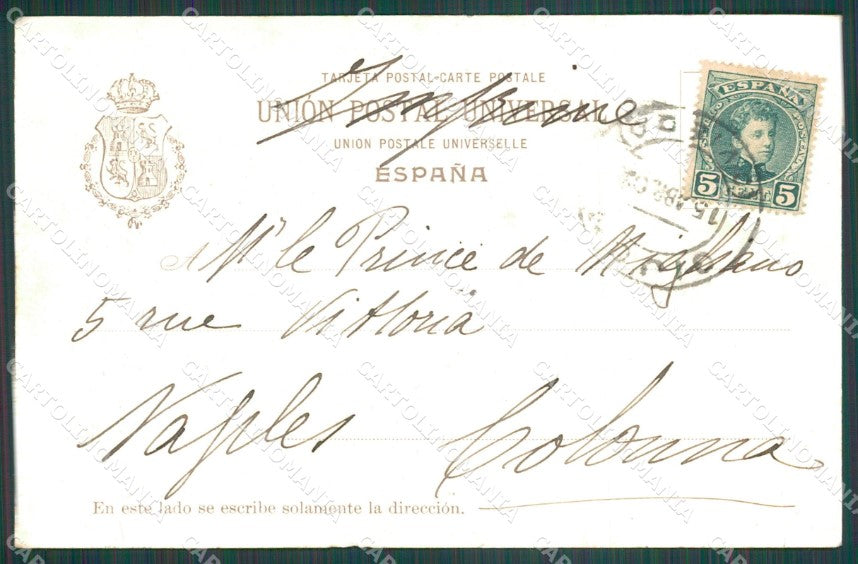 TARJETA POSTAL-CARTE POSTALE
UNIÓN POSTAL UNIVERSAL
UNION POSTALE UNIVERSELLE
ESPAÑA
Imprimé
ESPAÑA
5 5
15 ABR
Mr le Prince de Migliano
5 rue Vittoria
Naples Colonna
En este lado se escribe solamente la dirección.
CARTOLINOMANIA